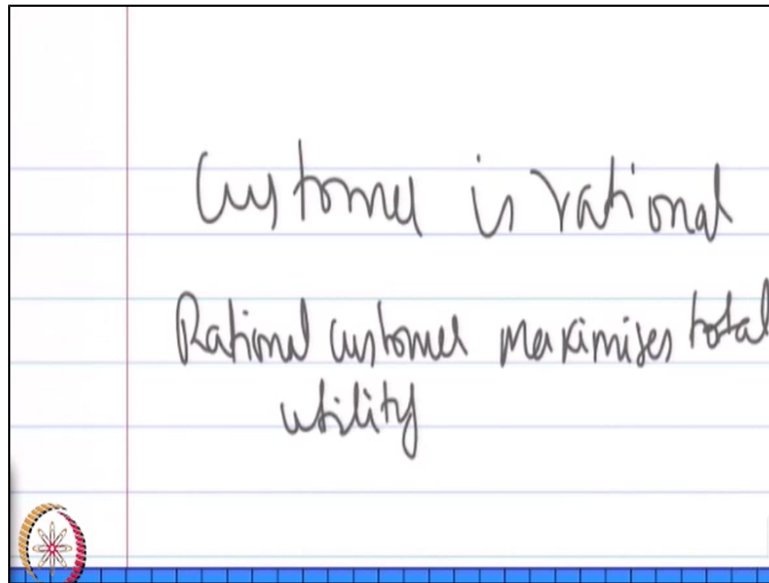 Customer is rational
Rational customer maximises total
utility